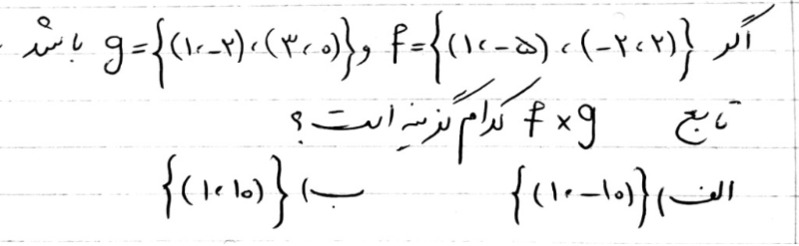 اگر f={(۱،-۵)،(-۲،۲)} و g={(۱،-۲)،(۳،۰)} باشد
تابع f×g کدام گزینه است؟
الف) {(۱،-۱۰)} ب) {(۱،۱۰)}